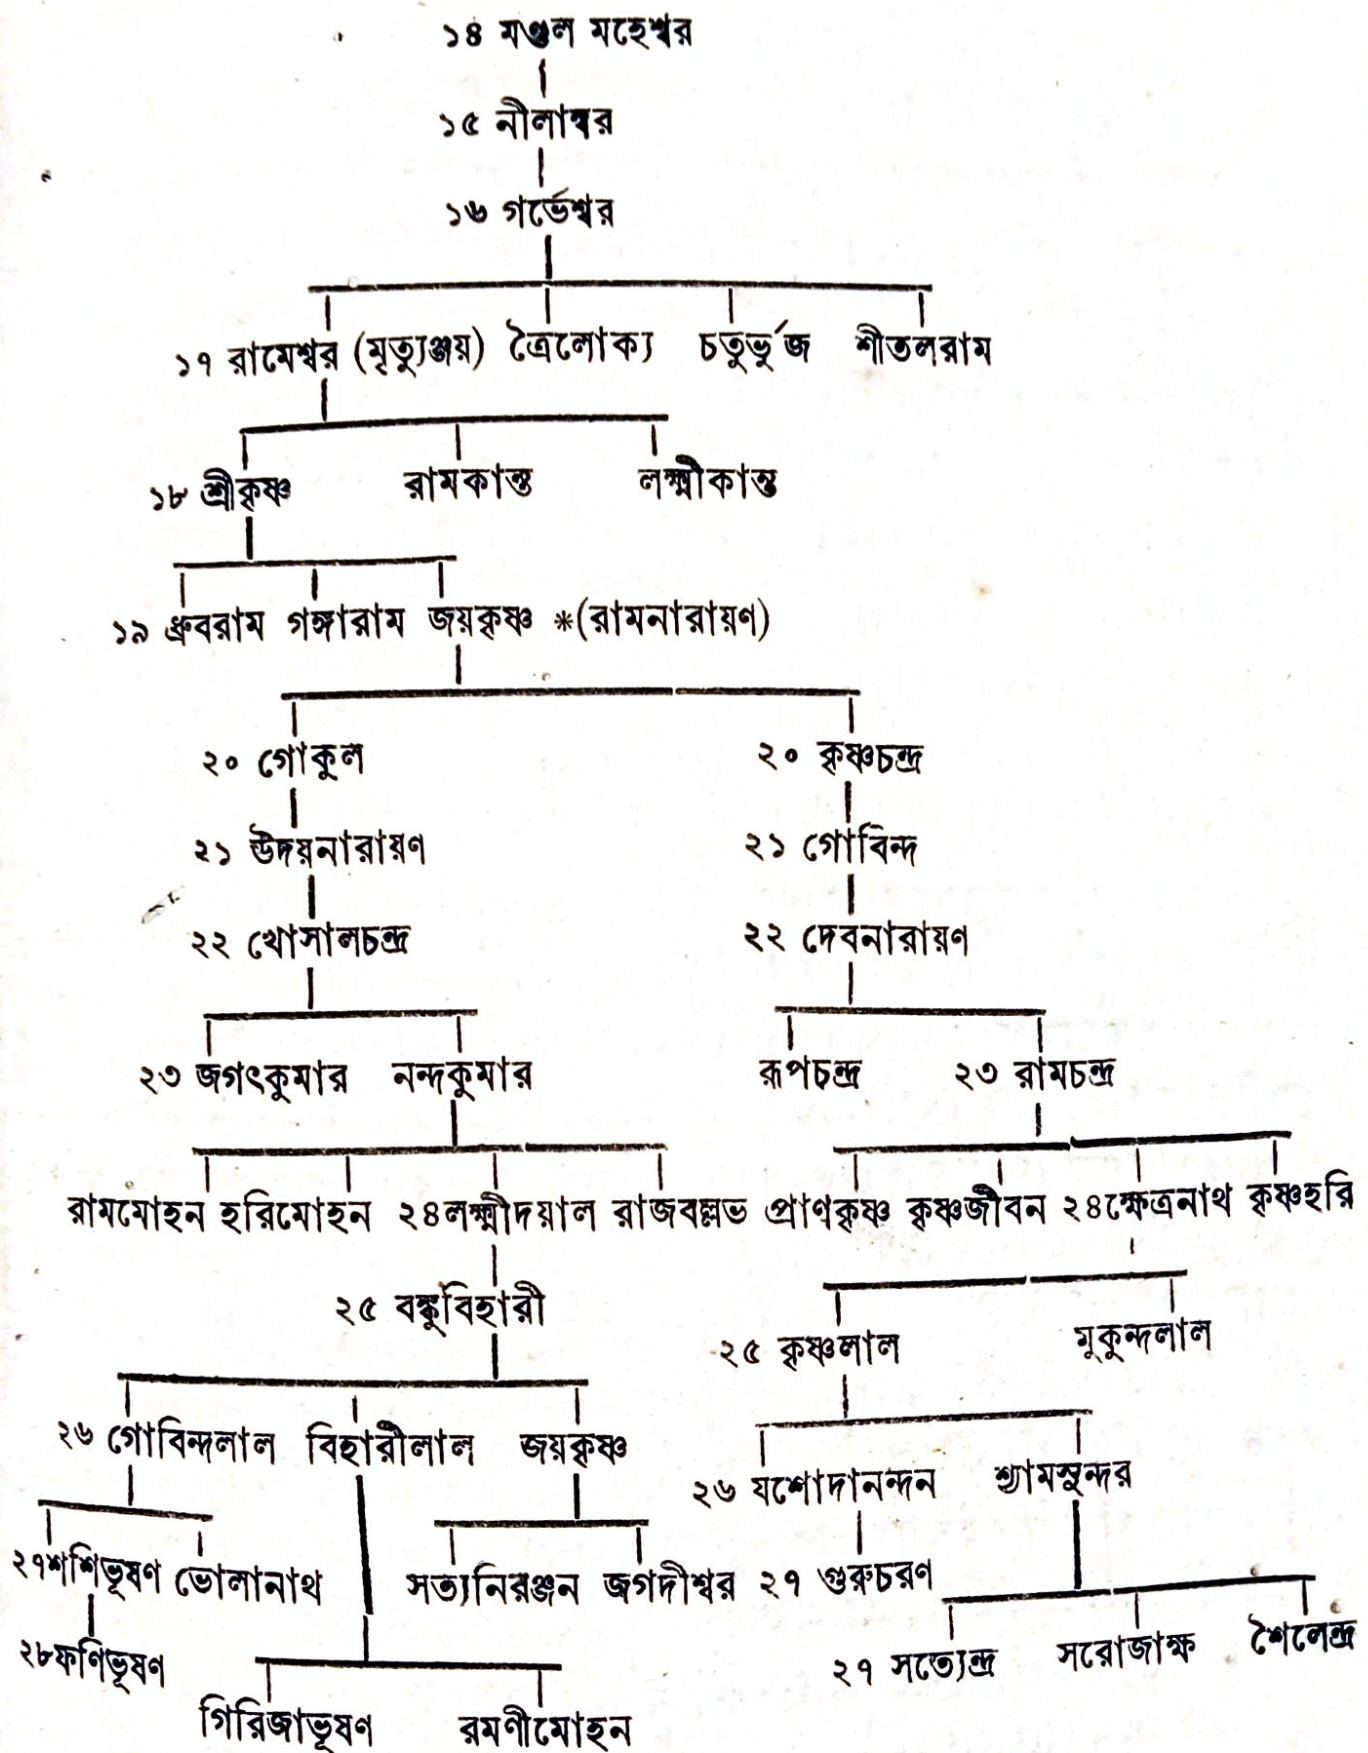 ১৪ মণ্ডল মহেশ্বর
১৫ নীলাম্বর
১৬ গর্ভেশ্বর
১৭ রামেশ্বর (মৃত্যুঞ্জয়) ত্রৈলোক্য চতুর্ভুজ শীতলরাম
১৮ শ্রীকৃষ্ণ রামকান্ত লক্ষ্মীকান্ত
১৯ ধ্রুবরাম গঙ্গারাম জয়কৃষ্ণ *(রামনারায়ণ)
২০ গোকুল ২০ কৃষ্ণচন্দ্র
২১ উদয়নারায়ণ ২১ গোবিন্দ
২২ খোসালচন্দ্র ২২ দেবনারায়ণ
২৩ জগৎকুমার নন্দকুমার রূপচন্দ্র ২৩ রামচন্দ্র
রামমোহন হরিমোহন ২৪লক্ষ্মীদয়াল রাজবল্লভ প্রাণকৃষ্ণ কৃষ্ণজীবন ২৪ক্ষেত্রনাথ কৃষ্ণহরি
২৫ বঙ্কুবিহারী ২৫ কৃষ্ণলাল মুকুন্দলাল
২৬ গোবিন্দলাল বিহারীলাল জয়কৃষ্ণ ২৬ যশোদানন্দন শ্যামসুন্দর
২৭শশিভূষণ ভোলানাথ সত্যনিরঞ্জন জগদীশ্বর ২৭ গুরুচরণ
২৮ফণিভূষণ ২৭ সত্যেন্দ্র সরোজাক্ষ শৈলেন্দ্র
গিরিজাভূষণ রমণীমোহন